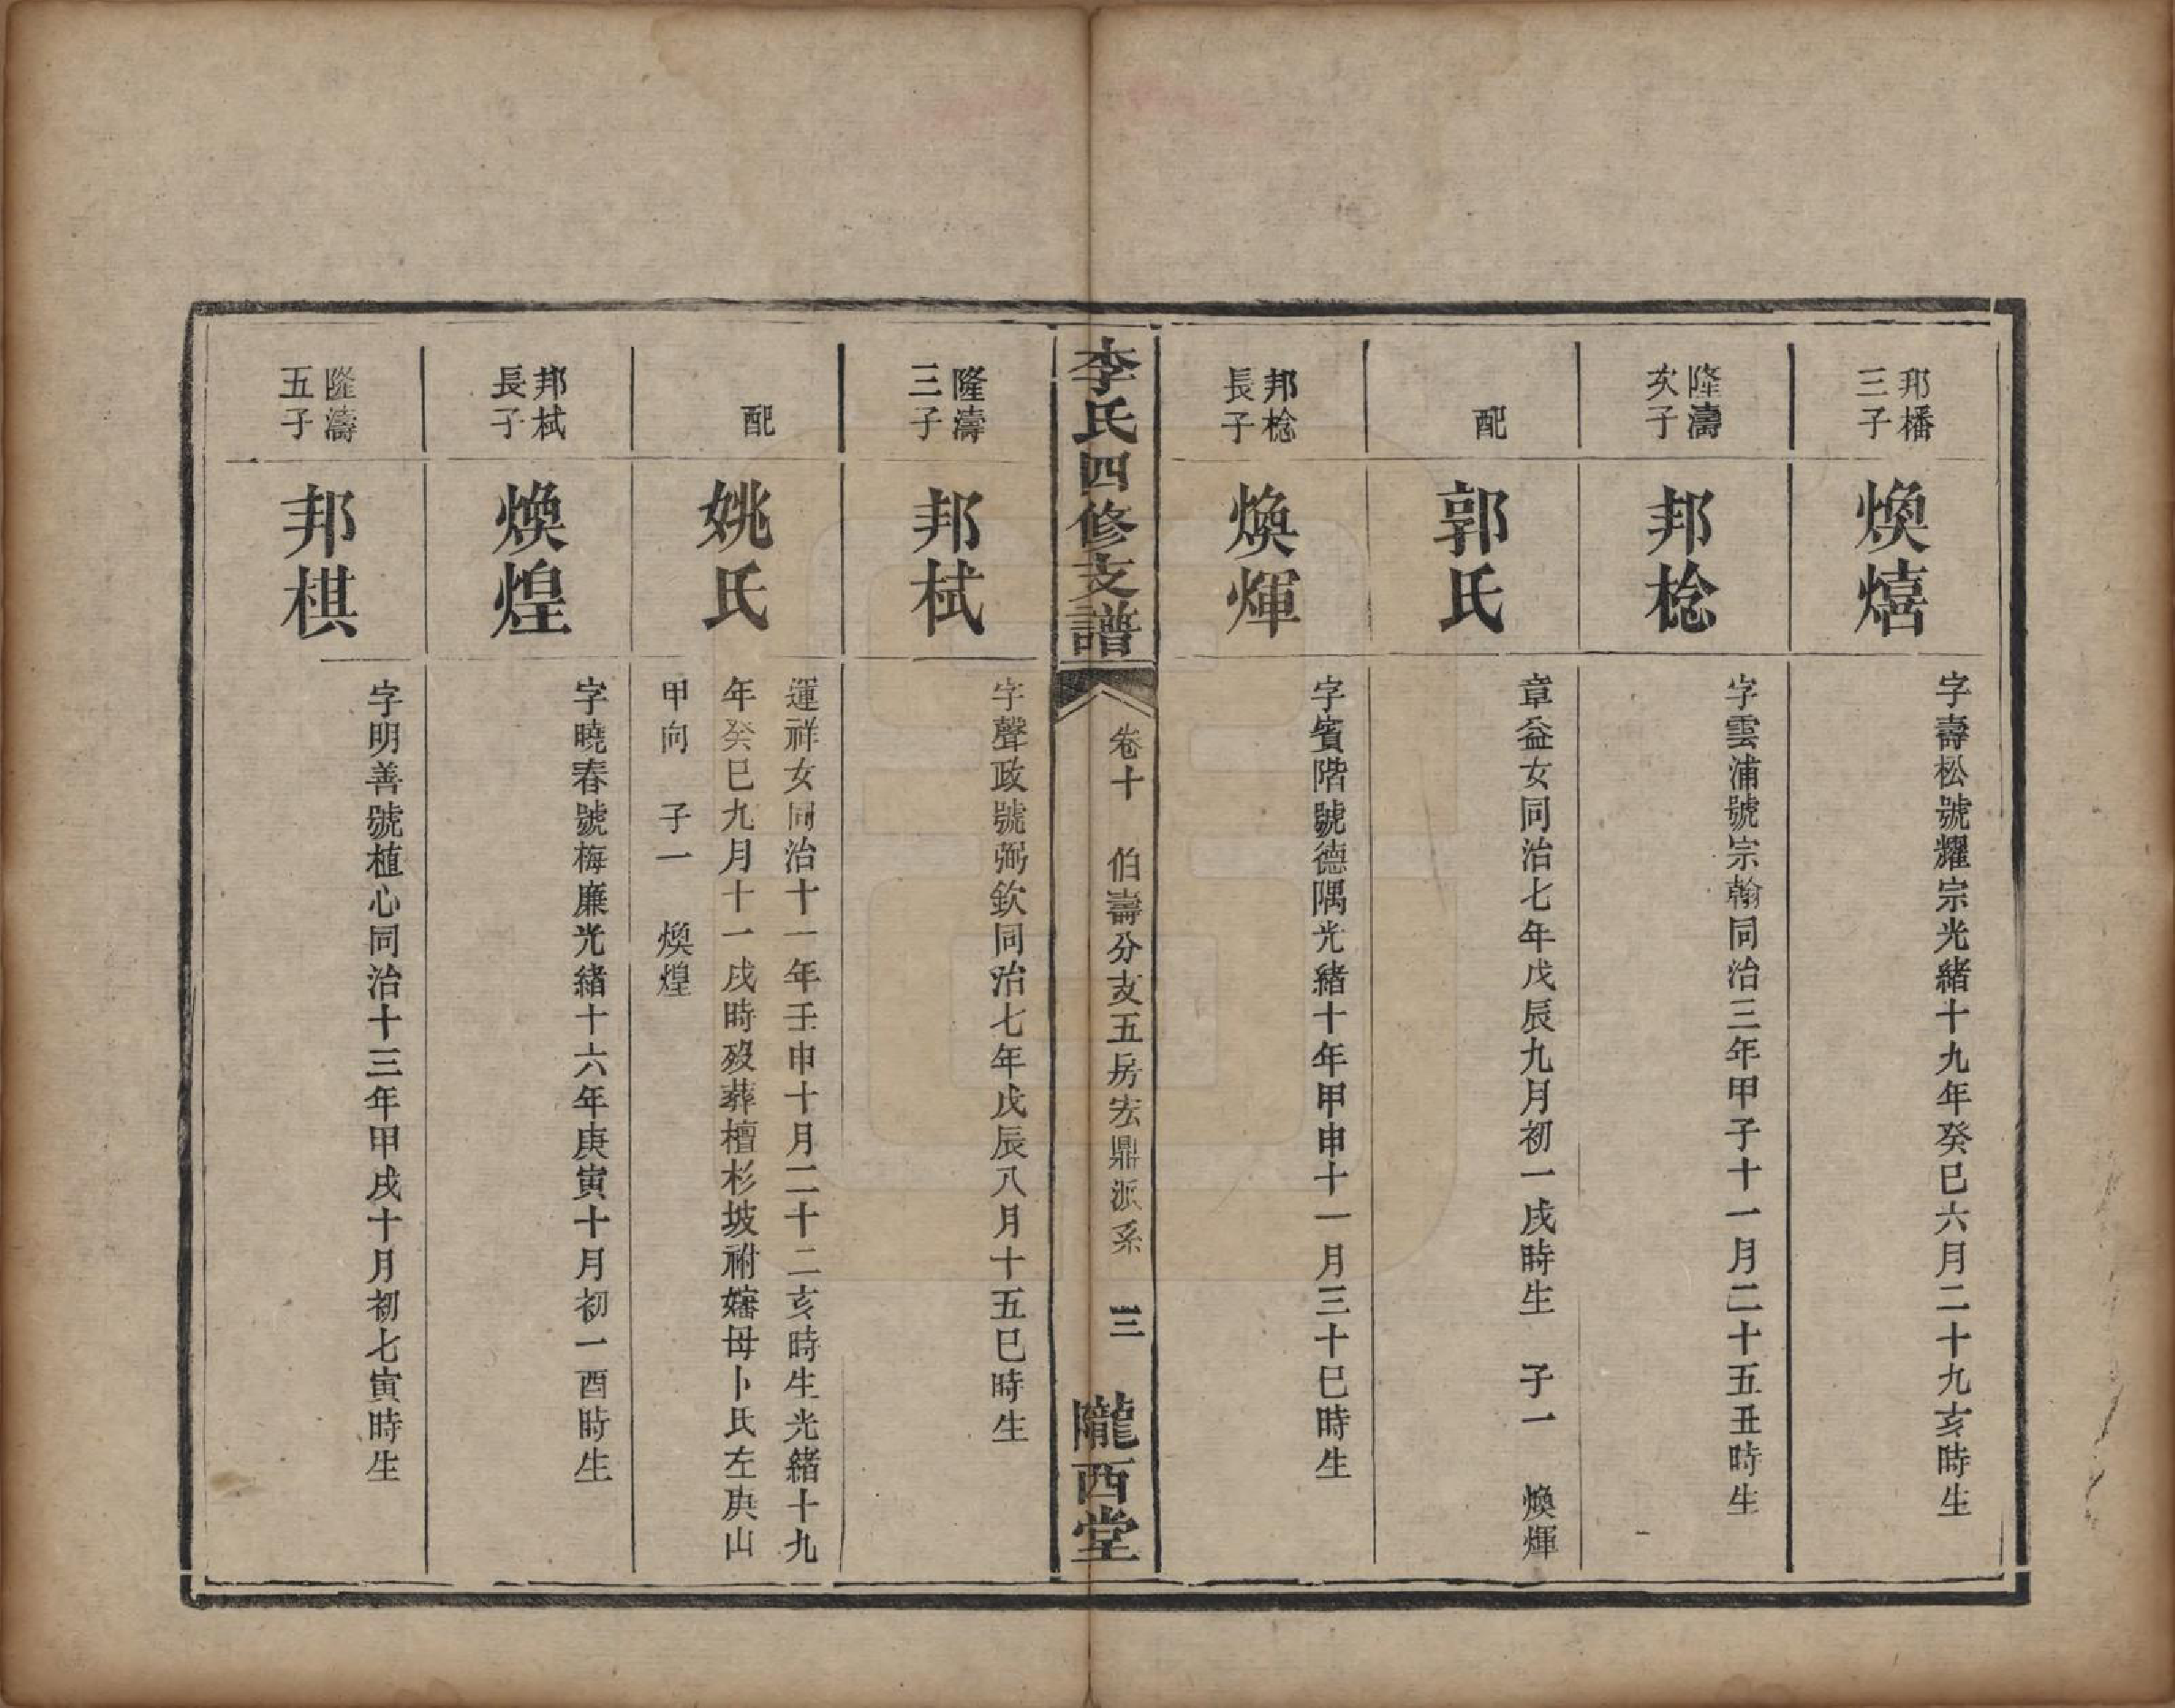 邦橎
三子
煥熺
字壽松號耀宗光緒十九年癸巳六月二十九亥時生
隆濤
次子
邦棯
字雲浦號宗翰同治三年甲子十一月二十五丑時生
配
郭氏
章益女同治七年戊辰九月初一戌時生　子一　煥煇
邦棯
長子
煥煇
字賓階號德隅光緒十年甲申十一月三十巳時生
李氏四修支譜
卷十　伯壽分支五房宏鼎派系　三
隴西堂
隆濤
三子
邦栻
字聲政號弼欽同治七年戊辰八月十五巳時生
配
姚氏
運祥女同治十一年壬申十月二十二亥時生光緒十九
年癸巳九月十一戌時歿葬檀杉坡祔嬸母卜氏左庚山
甲向　子一　煥煌
邦栻
長子
煥煌
字曉春號梅廉光緒十六年庚寅十月初一酉時生
隆濤
五子
邦棋
字明善號植心同治十三年甲戌十月初七寅時生